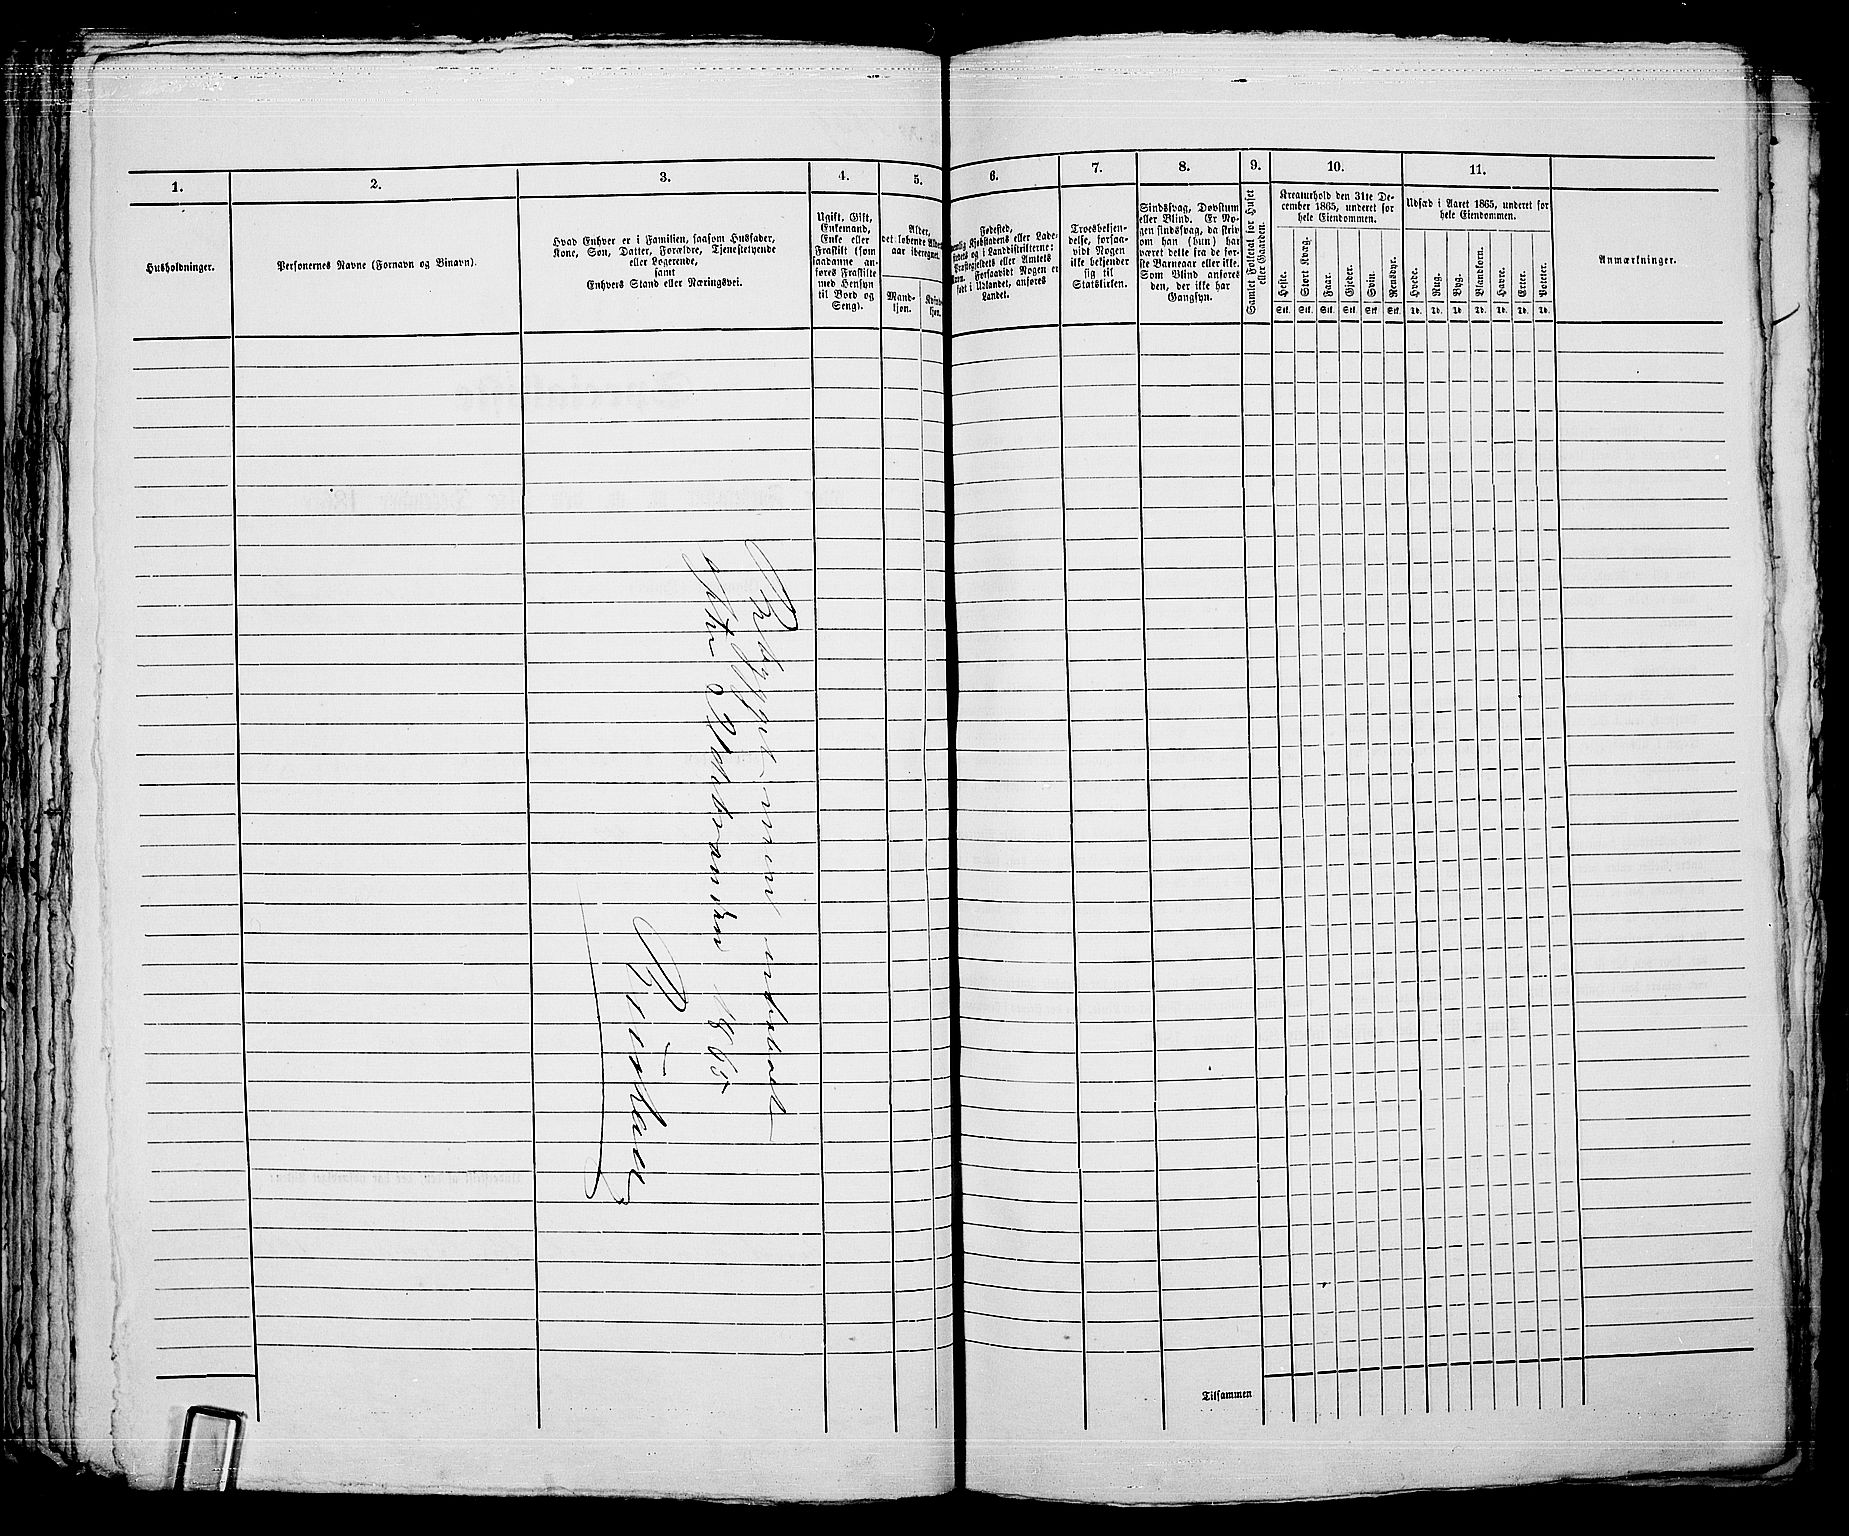 1.
2.
3.
4.
5.
6.
7.
8.
9.
10.
11.
Husholdninger.
Personernes Navne (Fornavn og Binavn).
Hvad Enhver er i Familien, saasom Husfader,
Kone, Søn, Datter, Forældre, Tjenestetyende
eller Logerende,
samt
Enhvers Stand eller Næringsvei.
Ugift, Gift,
Enkemand,
Enke eller
Fraskilt (som
saadanne an-
føres Fraskilte
med Hensyn
til Bord og
Seng).
Alder,
det løbende Alders-
aar iberegnet.
Mand-
kjøn.
Kvinde-
kjøn.
Fødested,
Kjøbstadens eller Lade-
stedets og i Landdistrikterne:
Præstegjeldets eller Amtets
Navn. Forsaavidt Nogen er
født i Udlandet, anføres
Landet.
Troesbekjen-
delse, forsaa-
vidt Nogen
ikke bekjender
sig til
Statskirken.
Sindssvag, Døvstum
eller Blind. Er No-
gen sindssvag, da skriv
om han (hun) har
været dette fra de før-
ste Barneaar eller ikke.
Som Blind anføres
den, der ikke har
Gangsyn.
Samlet Folketal for Huset
eller Gaarden.
Kreaturhold den 31te De-
cember 1865, underet for
hele Eiendommen.
Heste.
Stort Kvæg.
Faar.
Gjeder.
Svin.
Rensdyr.
Stk. Stk. Stk. Stk. Stk. Stk.
Udsæd i Aaret 1865, underet for
hele Eiendommen.
Hvede.
Rug.
Byg.
Blandkorn.
Havre.
Erter.
Poteter.
Td. Td. Td. Td. Td. Td. Td.
Anmærkninger.
Bebygget men ubeboet
1865
Tilsammen